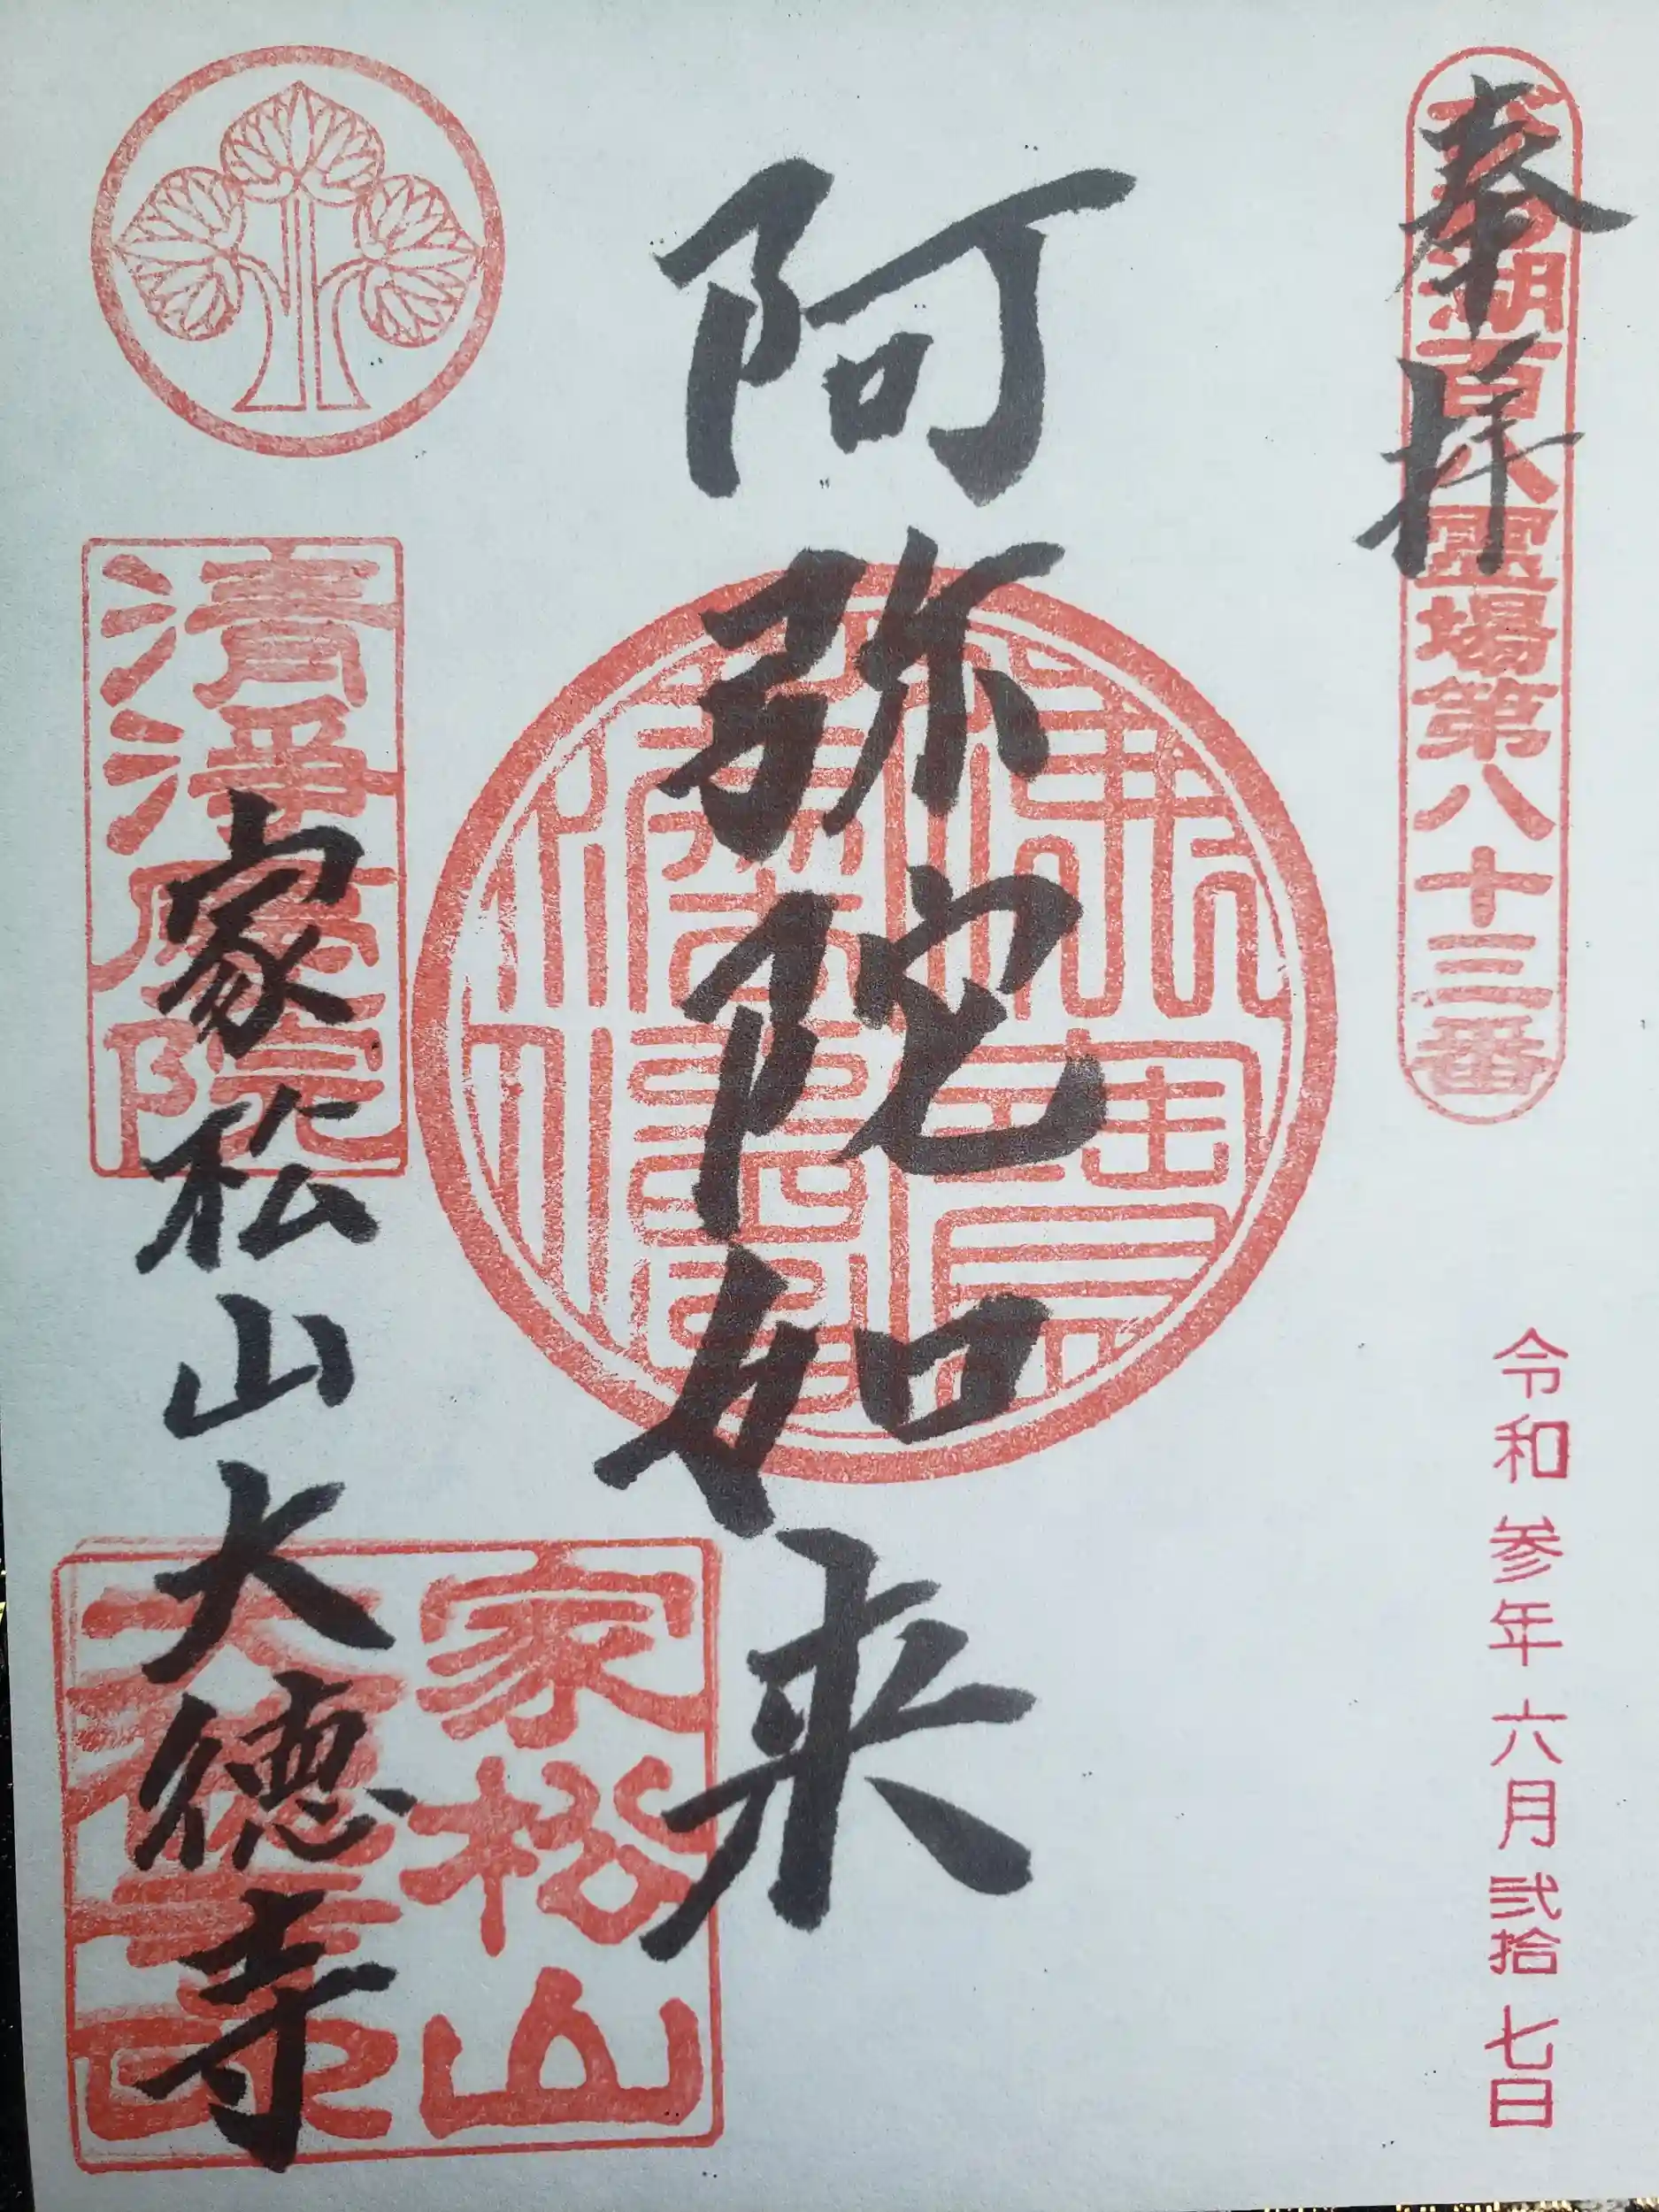 奉拝
湖百八霊場第八十三番
令和参年六月弐拾七日
阿弥陀如来
清澤庵院
家松山大徳寺
家松山
大徳寺